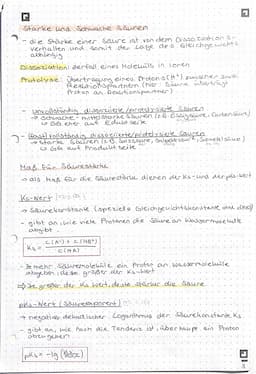 Starke und schwache Säuren
- die Stärke einer Säure ist von dem Dissoziations-
verhalten und somit der Lage des Gleichgewichts
abhängig
Dissoziation: Zerfall eines Moleküls in Ionen
Protolyse: Übertragung eines Protons (H⁺) zwischen zwei
Reaktionspartnern (hier: Säure überträgt
Proton an Reaktionspartner)
- Unvollständig dissoziierte/protolysierte Säuren
→ schwache - mittelstarke Säuren (z.B. Essigsäure,
→ GG eher auf Eduktseite
- (Fast) vollständig dissoziierte/protolysierte Säuren
→ starke Säuren (z.B. Salzsäure,
→ GG auf Produktseite
Maß für Säurestärke
→ als Maß für die Säurestärke dienen der Ks- und der pKs-Wert
Ks-Wert
→ Säurekonstante (spezielle Gleichgewichtskonstante
- gibt an, wie viele Protonen die Säure an Wassermoleküle
abgibt
Ks =
- Je mehr Säuremoleküle ein Proton an Wassermoleküle
abgeben, desto größer der Ks-Wert
⇒ Je größer der Ks Wert, desto stärker die Säure
pKs-Wert (Säureexponent)
→ negativer dekadischer Logarithmus der Säurekonstante Ks
- gibt an, wie hoch die Tendenz ist, überhaupt ein Proton
abzugeben
pKs = -lg